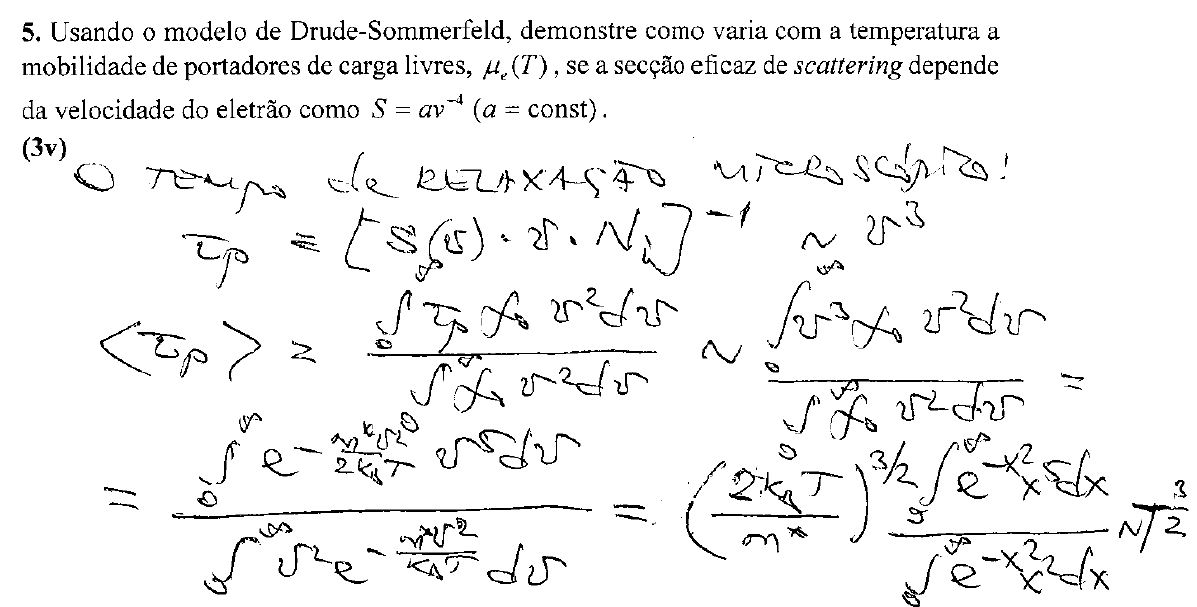 5. Usando o modelo de Drude-Sommerfeld, demonstre como varia com a temperatura a
mobilidade de portadores de carga livres, μₑ(T), se a secção eficaz de scattering depende
da velocidade do eletrão como S = av⁻⁴ (a = const).
(3v)
O TEMPO de RELAXAÇÃO MICROSCÓPICO!
τₚ = [S(v)·v·Nᵢ]⁻¹ ~ v³
<τₚ> = ∫₀^∞ τₚ f₀ v² dv / ∫₀^∞ f₀ v² dv ~ ∫₀^∞ v³ f₀ v² dv / ∫₀^∞ f₀ v² dv =
= ∫₀^∞ e^(-m*v²/2k_BT) v⁵ dv / ∫₀^∞ v² e^(-m*v²/k_BT) dv = (2k_BT/m*)^(3/2) ∫₀^∞ e^(-x²) x⁵ dx / ∫₀^∞ e^(-x²) x² dx ~ T^(3/2)